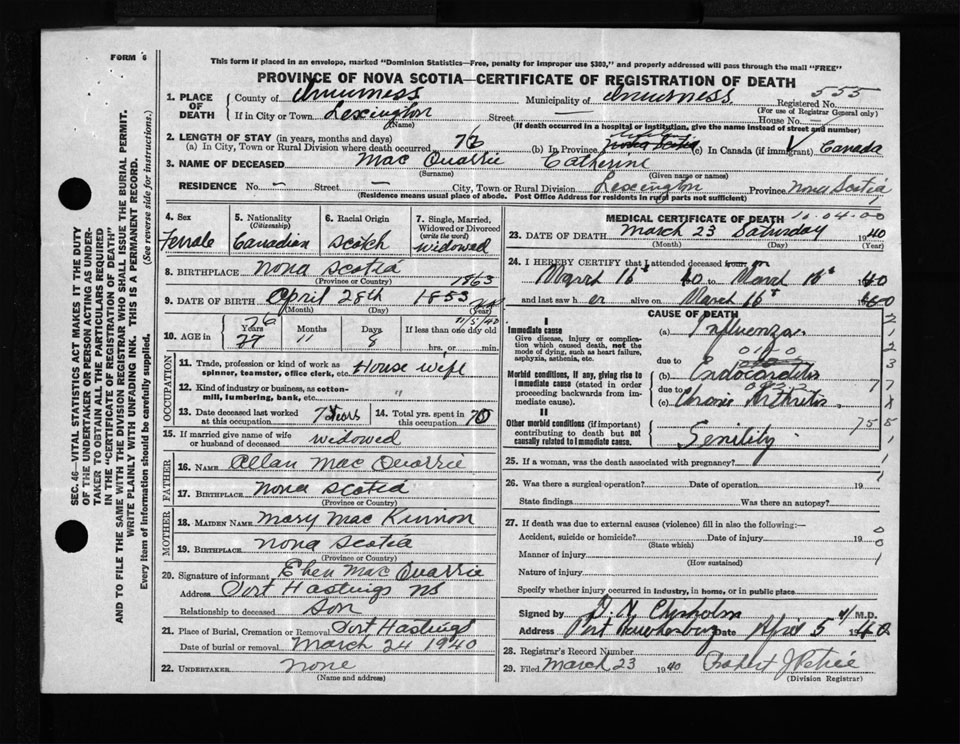 FORM 6
This form if placed in an envelope, marked "Dominion Statistics—Free, penalty for improper use $300," and properly addressed will pass through the mail "FREE"
PROVINCE OF NOVA SCOTIA—CERTIFICATE OF REGISTRATION OF DEATH
555
1. PLACE OF DEATH
County of Inverness Municipality of Inverness Registered No.
(For use of Registrar General only)
If in City or Town Lexington Street — House No. —
(Name) (If death occurred in a hospital or institution, give the name instead of street and number)
2. LENGTH OF STAY (in years, months and days)
(a) In City, Town or Rural Division where death occurred 76 (b) In Province Nova Scotia (c) In Canada (if immigrant) Canada
3. NAME OF DECEASED Mac Quarrie Catherine
(Surname) (Given name or names)
RESIDENCE No. — Street — City, Town or Rural Division Lexington Province Nova Scotia
(Residence means usual place of abode. Post Office Address for residents in rural parts not sufficient)
4. Sex
Female
5. Nationality
(Citizenship)
Canadian
6. Racial Origin
Scotch
7. Single, Married, Widowed or Divorced
(write the word)
Widowed
8. BIRTHPLACE Nova Scotia
(Province or Country)
1863
9. DATE OF BIRTH April 28th 1853
(Month) (Day) (Year)
11/5/40
10. AGE in
76
Years Months Days If less than one day old
77 11 8 hrs. or min.
OCCUPATION
11. Trade, profession or kind of work as spinner, teamster, office clerk, etc. House wife
12. Kind of industry or business, as cotton-mill, lumbering, bank, etc. "
13. Date deceased last worked at this occupation 7 Years
14. Total yrs. spent in this occupation 70
15. If married give name of wife or husband of deceased widowed
FATHER
16. NAME Allan Mac Quarrie
17. BIRTHPLACE Nova Scotia
(Province or Country)
MOTHER
18. MAIDEN NAME Mary Mac Kinnon
19. BIRTHPLACE Nova Scotia
(Province or Country)
20. Signature of informant Eben Mac Quarrie
Address Port Hastings NS
Relationship to deceased Son
21. Place of Burial, Cremation or Removal Port Hastings
Date of burial or removal March 24 1940
22. UNDERTAKER None
(Name and address)
MEDICAL CERTIFICATE OF DEATH 10.04.00
23. DATE OF DEATH March 23 Saturday 1940
(Month) (Day) (Year)
24. I HEREBY CERTIFY that I attended deceased from
March 16th 40 to March 16th 40
and last saw her alive on March 16th 40
CAUSE OF DEATH
I
Immediate cause
Give disease, injury or complication which caused death, not the mode of dying, such as heart failure, asphyxia, asthenia, etc.
(a) Influenza
due to
Morbid conditions, if any, giving rise to immediate cause (stated in order proceeding backwards from immediate cause).
(b) Endocarditis
due to
(c) Chronic Arthritis
II
Other morbid conditions (if important) contributing to death but not causally related to immediate cause.
Senility
25. If a woman, was the death associated with pregnancy?
26. Was there a surgical operation? Date of operation 19
State findings Was there an autopsy?
27. If death was due to external causes (violence) fill in also the following:—
Accident, suicide or homicide? Date of injury 19
(State which)
Manner of injury
(How sustained)
Nature of injury
Specify whether injury occurred in industry, in home, or in public place
Signed by Chisholm M.D.
Address Port Hawkesbury Date April 5 1940
28. Registrar's Record Number
29. Filed March 23 1940 Robert J Petrie
(Division Registrar)
SEC. 46—VITAL STATISTICS ACT MAKES IT THE DUTY
OF THE UNDERTAKER OR PERSON ACTING AS UNDER-
TAKER TO OBTAIN ALL THE PARTICULARS REQUIRED
IN THE "CERTIFICATE OF REGISTRATION OF DEATH"
AND TO FILE THE SAME WITH THE DIVISION REGISTRAR WHO SHALL ISSUE THE BURIAL PERMIT.
WRITE PLAINLY WITH UNFADING INK. THIS IS A PERMANENT RECORD.
Every item of information should be carefully supplied. (See reverse side for instructions.)